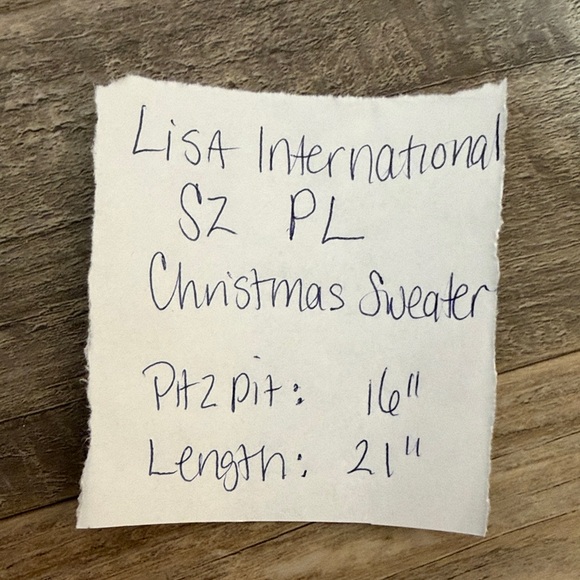 Lisa International
SZ PL
Christmas Sweater
Pit 2 pit: 16"
Length: 21"